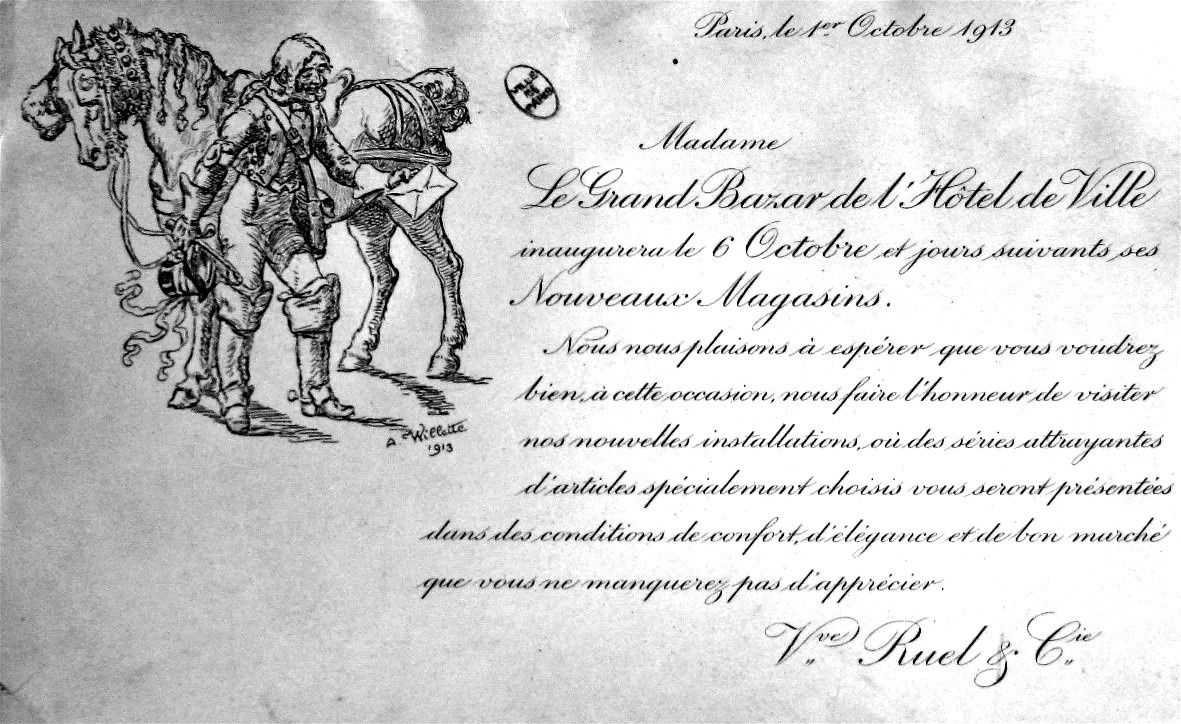 Paris, le 1er Octobre 1913
VILLE
DE
PARIS
Madame
Le Grand Bazar de l'Hôtel de Ville
inaugurera le 6 Octobre et jours suivants ses
Nouveaux Magasins.
Nous nous plaisons à espérer que vous voudrez
bien, à cette occasion, nous faire l'honneur de visiter
nos nouvelles installations, où des séries attrayantes
d'articles spécialement choisis vous seront présentées
dans des conditions de confort, d'élégance et de bon marché
que vous ne manquerez pas d'apprécier.
Vve Ruel & Cie
A Willette
1913